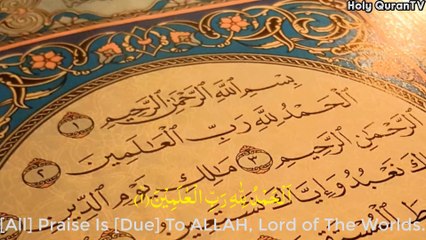 Holy QuranTV
بِسْمِ ٱللَّهِ ٱلرَّحْمَٰنِ ٱلرَّحِيمِ ١
ٱلْحَمْدُ لِلَّهِ رَبِّ ٱلْعَٰلَمِينَ ٢
ٱلرَّحْمَٰنِ ٱلرَّحِيمِ ٣ مَٰلِكِ يَوْمِ ٱلدِّينِ
نَعْبُدُ وَإِيَّاكَ نَسْتَعِينُ
ٱلْحَمْدُ لِلَّهِ رَبِّ ٱلْعَٰلَمِينَ(١)
[All] Praise Is [Due] To ALLAH, Lord of The Worlds.